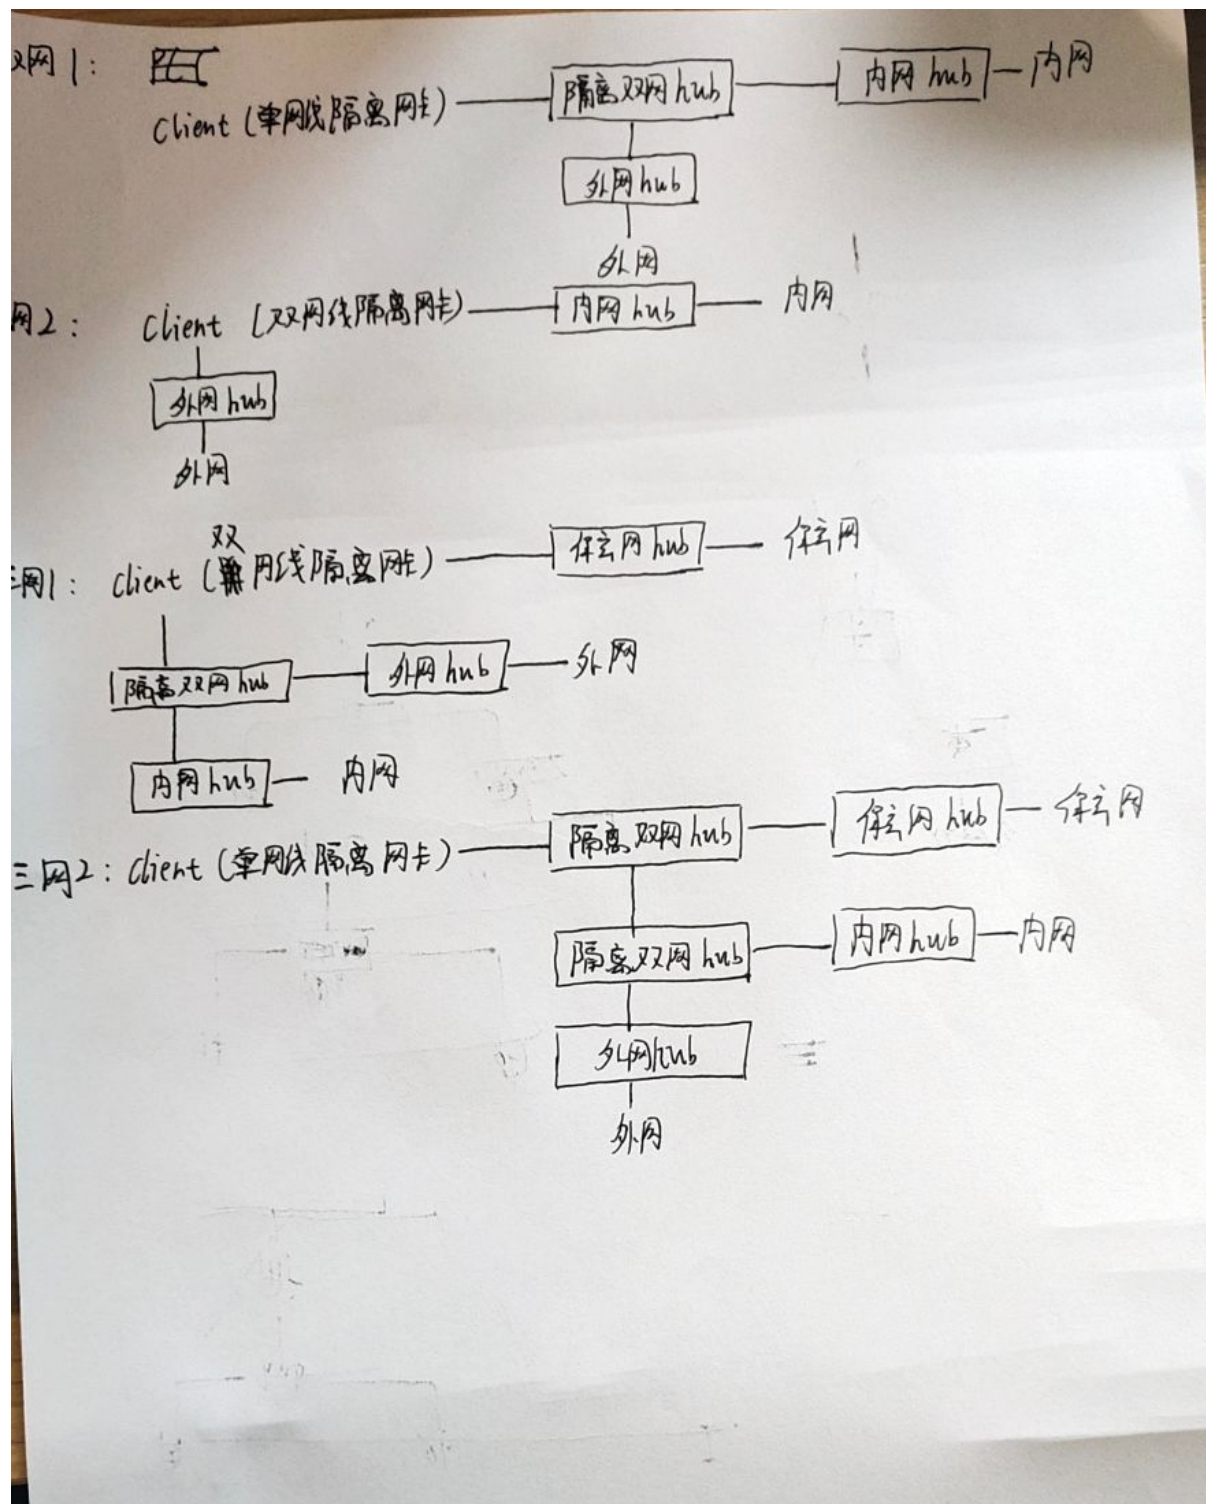 双网1:
Client (单网线隔离网卡) 隔离双网hub 内网hub 内网
外网hub
外网
网2: Client (双网线隔离网卡) 内网hub 内网
外网hub
外网
双
三网1: Client (网线隔离网卡) 保玄网hub 保玄网
隔离双网hub 外网hub 外网
内网hub 内网
三网2: Client (单网线隔离网卡) 隔离双网hub 保玄网hub 保玄网
隔离双网hub 内网hub 内网
外网hub
外网